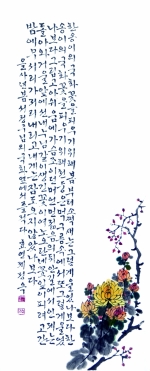 한송이의국화꽃을피우기위해봄부터소쩍새는그렇게울었나보다한
송이의국화꽃을피우기위해천둥은먹구름속에서또그렇게울었
나보다그립고아쉬움에가슴조이던머언먼젊음의뒤안길에서인제는
돌아와거울앞에선내누님같이생긴꽃이여노오란네꽃잎이피려고간
밤에무서리가저리내리고내게는잠도오지않았나보다
서정주님의국화옆에서